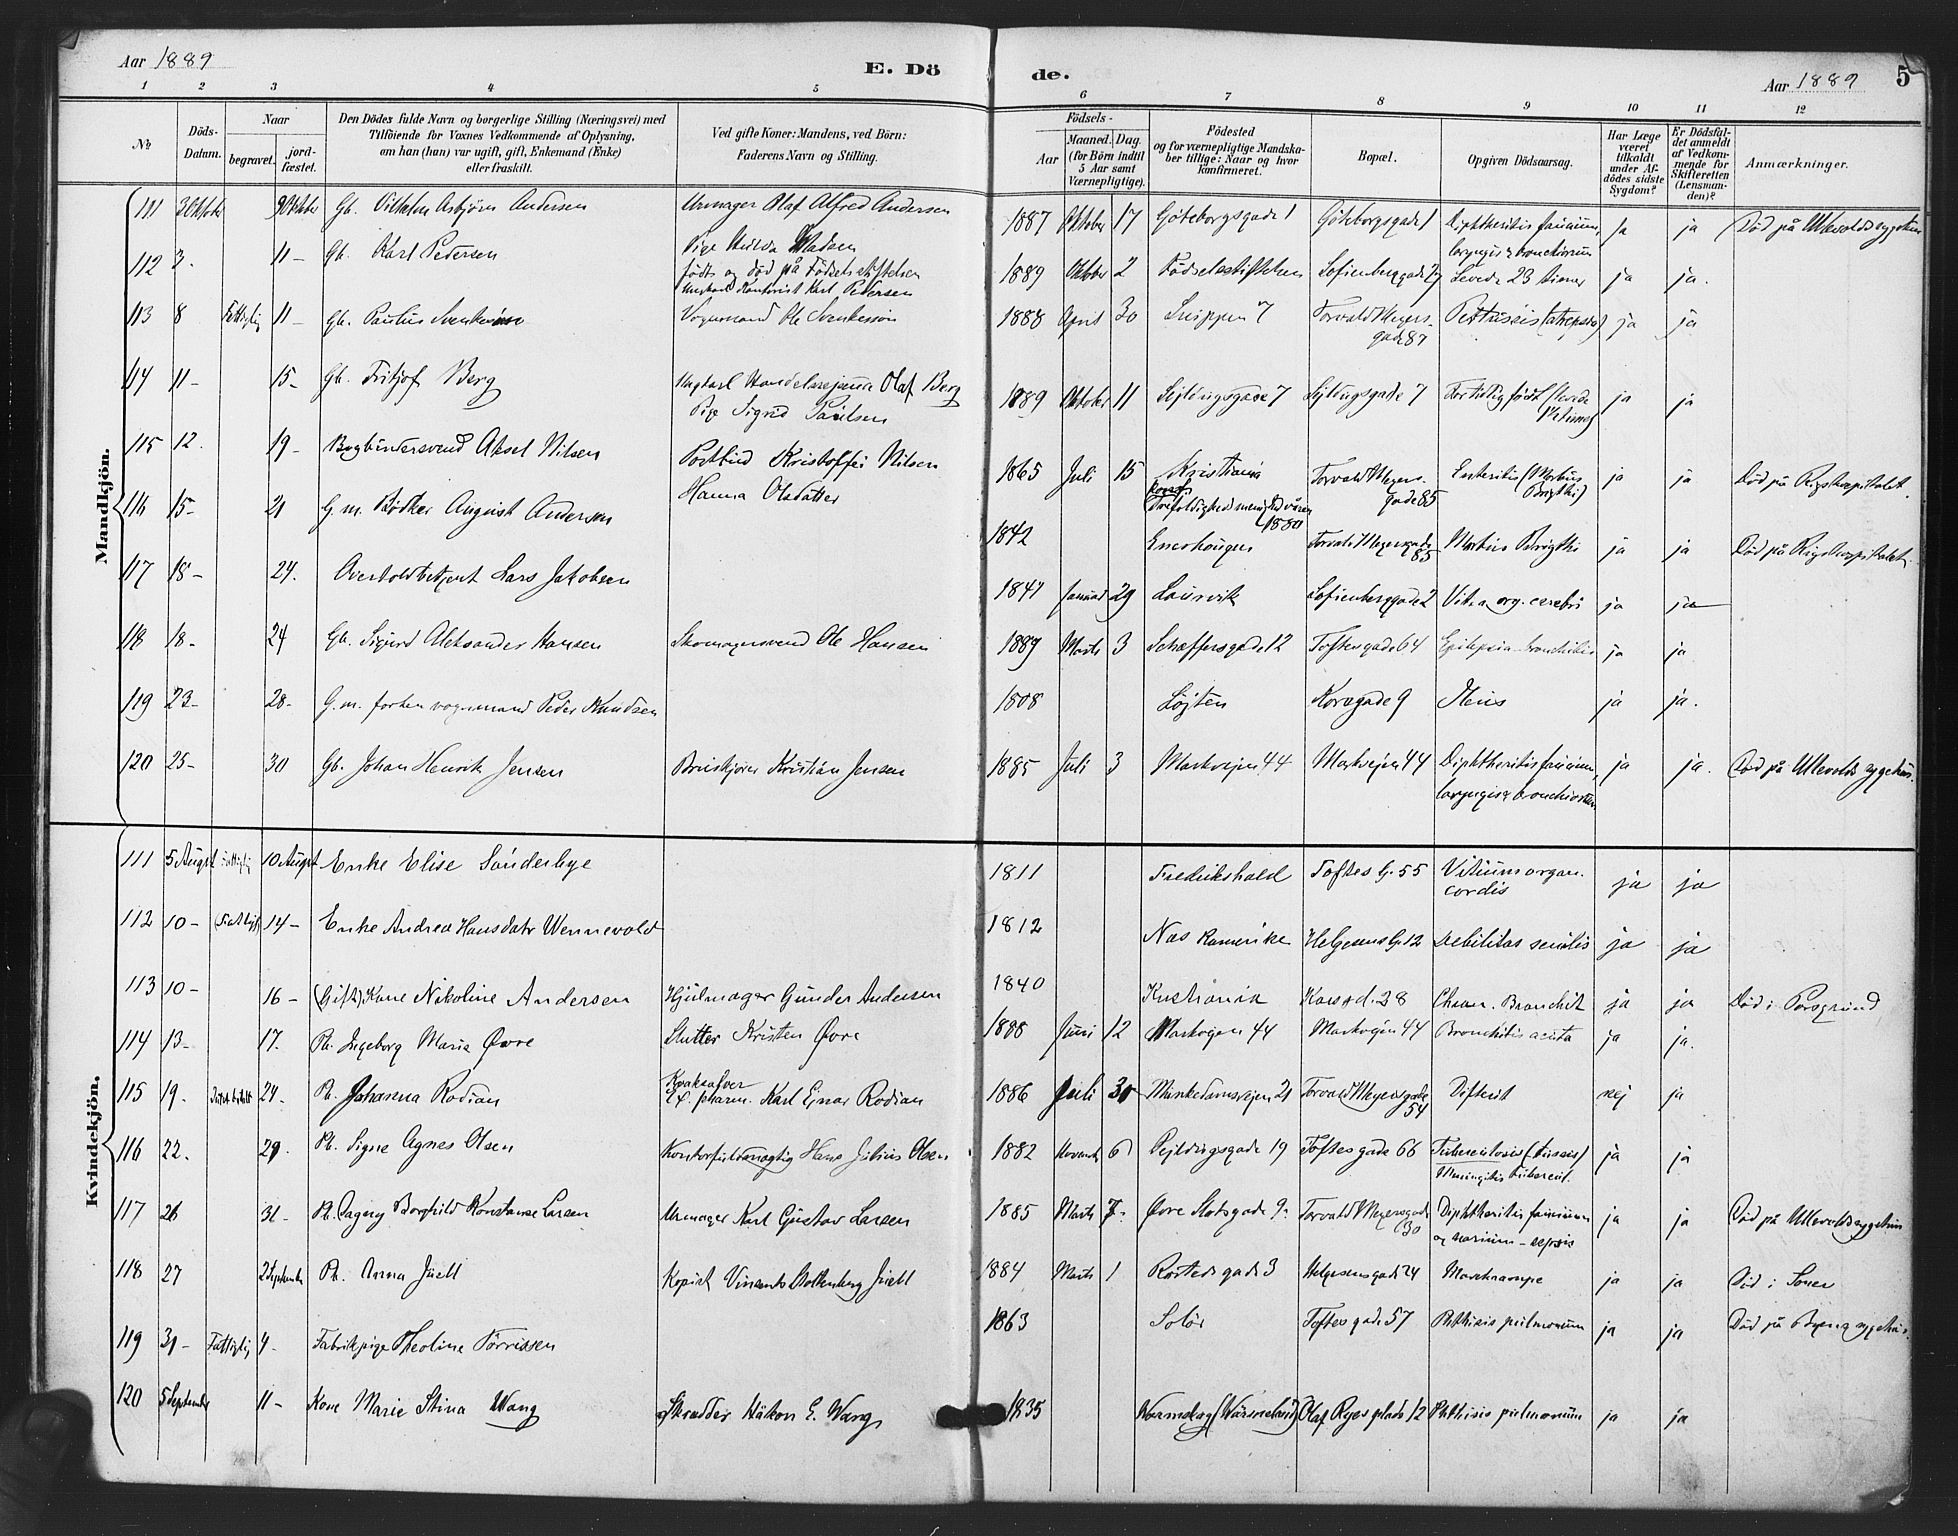 Aar 1889
E. Dö
de.
Aar 1889
5
1 2 3 4 5 6 7 8 9 10 11 12
No
Döds-Datum.
Naar
begravet.
jord-fæstet.
Den Dödes fulde Navn og borgerlige Stilling (Næringsvei) med
Tilföiende for Voxnes Vedkommende af Oplysning,
om han (hun) var ugift, gift, Enkemand (Enke)
eller fraskilt.
Ved gifte Koner: Mandens, ved Börn:
Faderens Navn og Stilling.
Födsels-
Aar
Maaned. Dag.
(for Börn indtil
5 Aar samt
Værnepligtige).
Födested
og for værnepligtige Mandska-
ber tillige: Naar og hvor
konfirmeret.
Bopæl.
Opgiven Dödsaarsag.
Har Læge
været
tilkaldt
under Af-
dödes sidste
Sygdom?
Er Dödsfal-
det anmeldt
af Vedkom-
mende for
Skifteretten
(Lensman-
den)?
Anmærkninger.
Mandkjön.
111 3 Oktober 9 Oktober Gb. Vilhelm Asbjörn Andersen Urmager Olaf Alfred Andersen 1887 Oktober 17 Göteborgsgade 1 Göteborgsgade 1 Diphtheritis faucium, ja ja Död på Ullevoldssygehus
laryngis & bronchiorum
112 3. 11 - Gb. Karl Pedersen Pige Hulda Madsen
födt og död på Födselsstiftelsen
Karl Pedersen 1889 Oktober 2 Födselsstiftelsen Sofienberggade Levede 23 timer ja ja.
113 8 Fattiglig 11 - Gb. Paulus Svenkesön Vognmand Ole Svenkesön 1888 April 30 Snippen 7 Torvald Meyers-
gade 87 Pertussis (atrepsia) ja ja
114 11 - 15 - Gb. Fritjof Berg Ungkarl Olaf Berg
Pige Sigrid Paulsen 1889 Oktober 11 Sejldugsgade 7 Sejldugsgade 7 For tidlig födt (levede
ja ja
115 12. 19 - Bogbindersvend Aksel Nilsen Postbud Kristoffer Nilsen
Hanna Olsdatter 1865 Juli 15 Kristiania
Konf.
Trefoldighedsmenighed våren
1880 Torvald Meyers-
gade 85 (Morbus
Brigthi) ja ja Död på Rigshospitalet.
116 15 - 21 G. m. Bödker August Andersen 1842 Enerhaugen Torvald Meyersgade
85 Morbus Brigthi ja ja Död på Rigshospitalet
117 18 - 24. Lars Jakobsen 1847 Januar 29 Laurvik Sofienberggade 2 Vitia org. cerebri ja ja
118 18 - 24 Gb. Sigurd Aleksander Hansen Skomagersvend Ole Hansen 1889 Marts 3 Schæffersgade 12 Toftesgade 64 Epilepsia - bronchitis ja ja
119 23 - 28 - G. m. forhen vognmand Peder Knudsen 1808 Löjten Korsgade 9 Ileus ja ja.
120 25 - 30 Gb. Johan Henrik Jensen Kristian Jensen 1885 Juli 3 Markvejen 44 Markvejen 44 Diphtheritis faucium, ja ja. Död på Ullevolds sygehus.
laryngis & bronchiorum
Kvindekjön.
111 5 August Fattiglig 10 August Enke Elise Sönderbye 1811 Fredrikshald Toftes G. 55 Vitium organ.
cordis ja ja
112 10 - Fattigl. 14 - Enke Andrea Hansdatr Wennevold 1812 Næs Romerike Helgesens G. 12 Debilitas senilis ja ja
113 10 - 16 - (Gift) Kone Nikoline Andersen Hjulmager Gunder Andersen 1840 Kristiania 28 Bronchit ja ja Död i Porsgrund
114 13 - 17. Pb. Ingeborg Maria Övre Slutter Kristen Övre 1888 Juni 12 Markvejen 44 Markvejen 44 Bronchitis acuta ja ja.
115 19. 24 - Pb. Johanna Rodian Kvaksalver
Ex. pharm. Karl Ejnar Rodian 1886 Juli 30 Munkedamsvejen 21 Torvald Meyersgade
54 Difterit nej ja
116 22. 29. Pb. Signe Agnes Olsen Kontorfuldmægtig Hans Julius Olsen 1882 6 Sejldugsgade 19 Toftesgade 66 Tuberculosis
Meningitis tubercul. ja ja
117 26 31 - Pb. Dagny Borghild Konstanse Larsen Urmager Karl Gustav Larsen 1885 Marts 7 - Övre Slotsgade 9. Torvald Meyersgade
30 Diphtheritis faucium
og narium - sepsis ja ja Död på Ullevoldssygehus
118 27 2 September Pb. Anna Juell Kopist Juell 1884 Marts 1 Rostedsgade 3 Helgesensgade 24 ja ja Död i Soner
119 31 - Fattiglig 4 - Fabrikpige Theoline Törrissen 1863 Solör Toftesgade 57 Phthisis pulmonum ja ja Död på Byens sygehus.
120 5 September 11 - Kone Marie Stina Wang Skrædder Håkon E. Wang 1835 (Värmeland) Olaf Ryes plads 12 Phthisis pulmonum ja ja